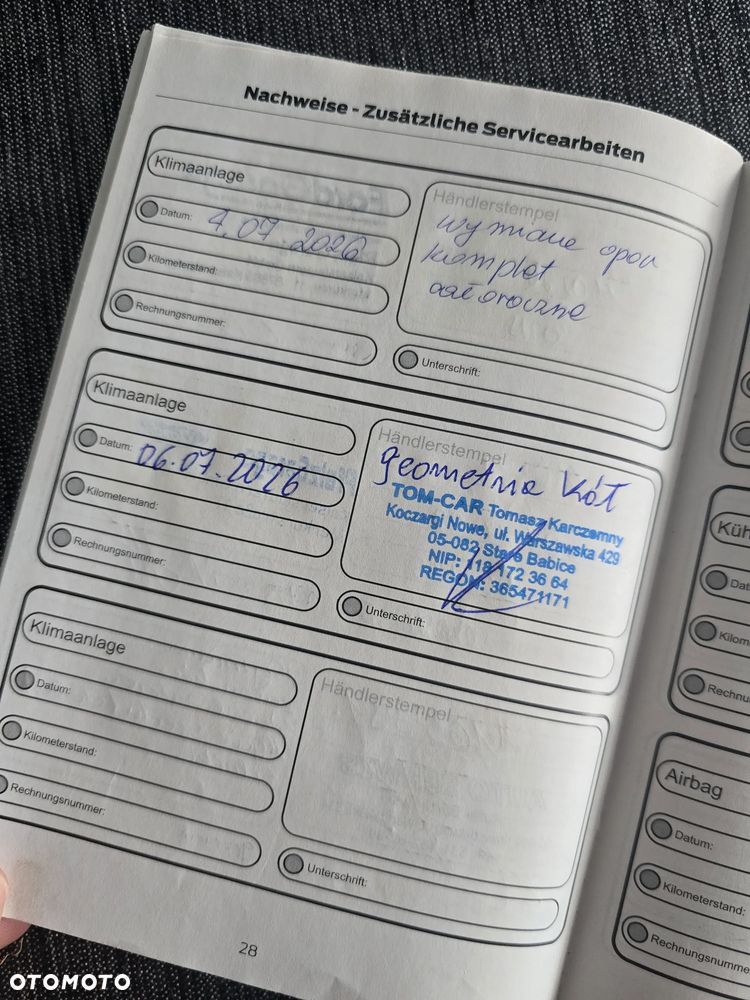 Nachweise - Zusätzliche Servicearbeiten
Klimaanlage
Datum: 4.07.2026
Kilometerstand:
Rechnungsnummer:
Händlerstempel
wymiana opon
komplet
całoroczne
Unterschrift:
Klimaanlage
Datum: 06.07.2026
Kilometerstand:
Rechnungsnummer:
Händlerstempel
geometria kół
TOM-CAR Tomasz Karczemny
Koczargi Nowe, ul. Warszawska 429
05-082 Stare Babice
NIP: 118 172 36 64
REGON: 365471171
Unterschrift:
Klimaanlage
Datum:
Kilometerstand:
Rechnungsnummer:
Händlerstempel
Unterschrift:
28
Airbag
Datum:
Kilometerstand:
OTOMOTO